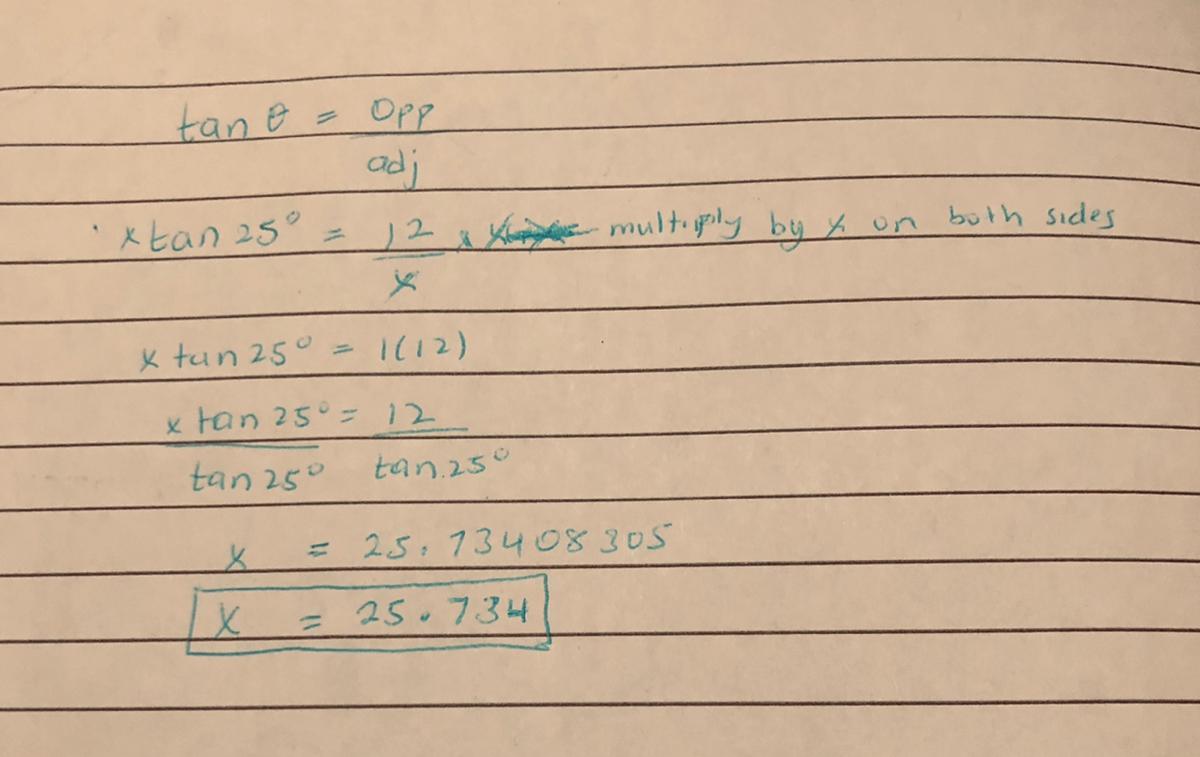 tan θ = Opp
adj
x tan 25° = 12 x multiply by x on both sides
x
x tan 25° = 1(12)
x tan 25° = 12
tan 25° tan 25°
x = 25.73408305
x = 25.734